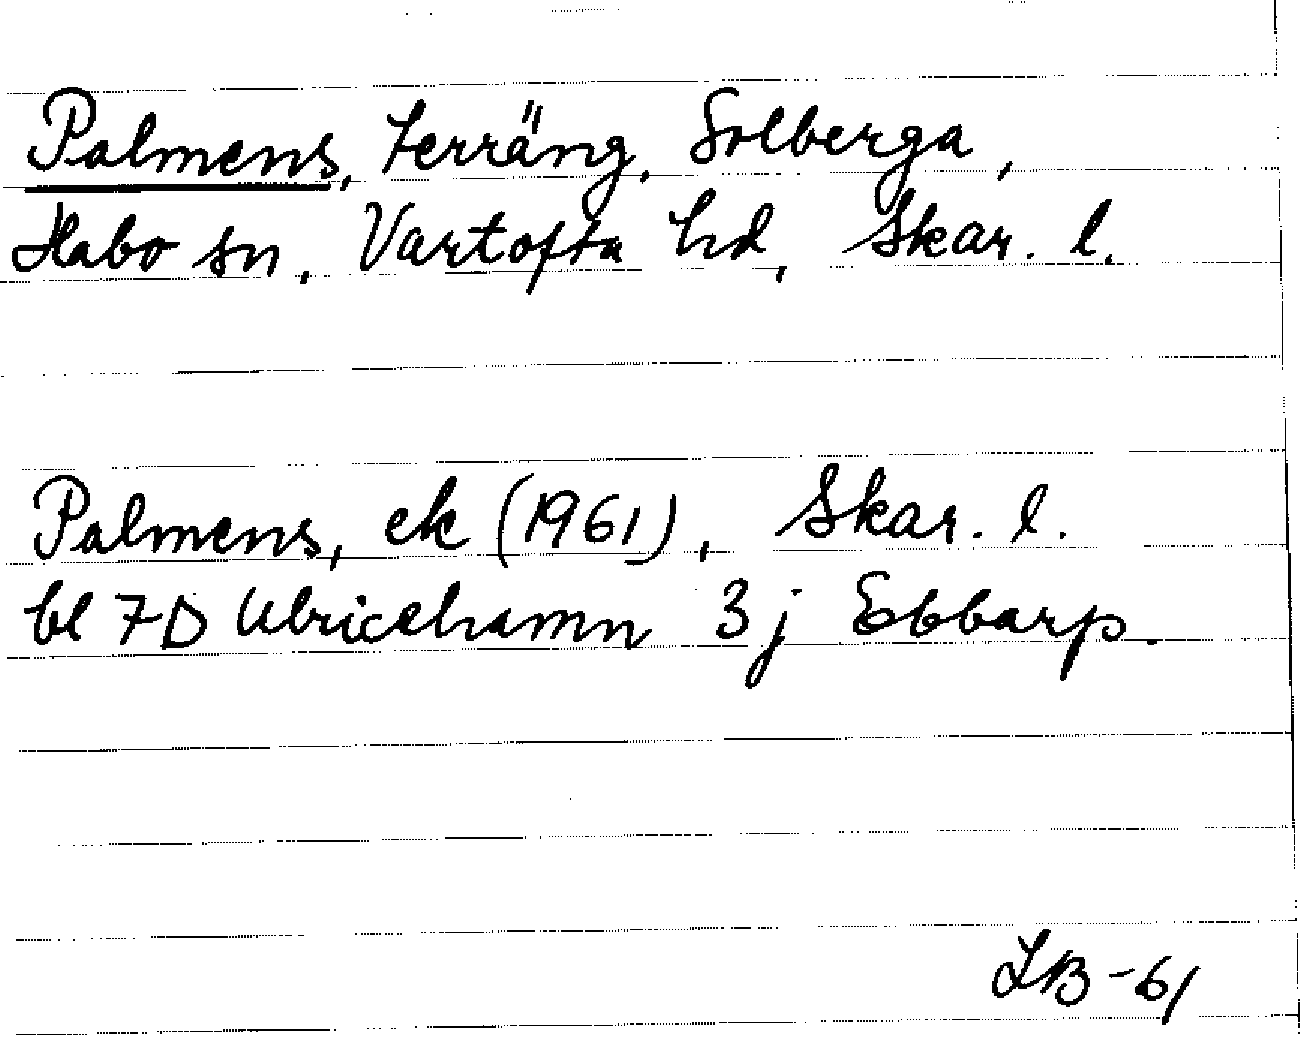 Palmens, terräng, Solberga,
Habo sn, Vartofta hd, Skar. l.
Palmens, ek (1961), Skar. l.
bl 7D Ulricehamn 3j Ebbarp.
LB-61